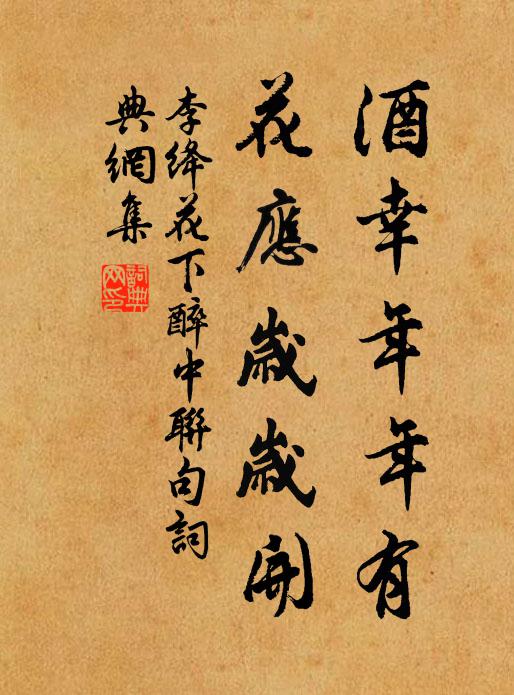 酒幸年年有
花應歲歲開
李絳花下醉中聯句詞
典網集
詞典
网印